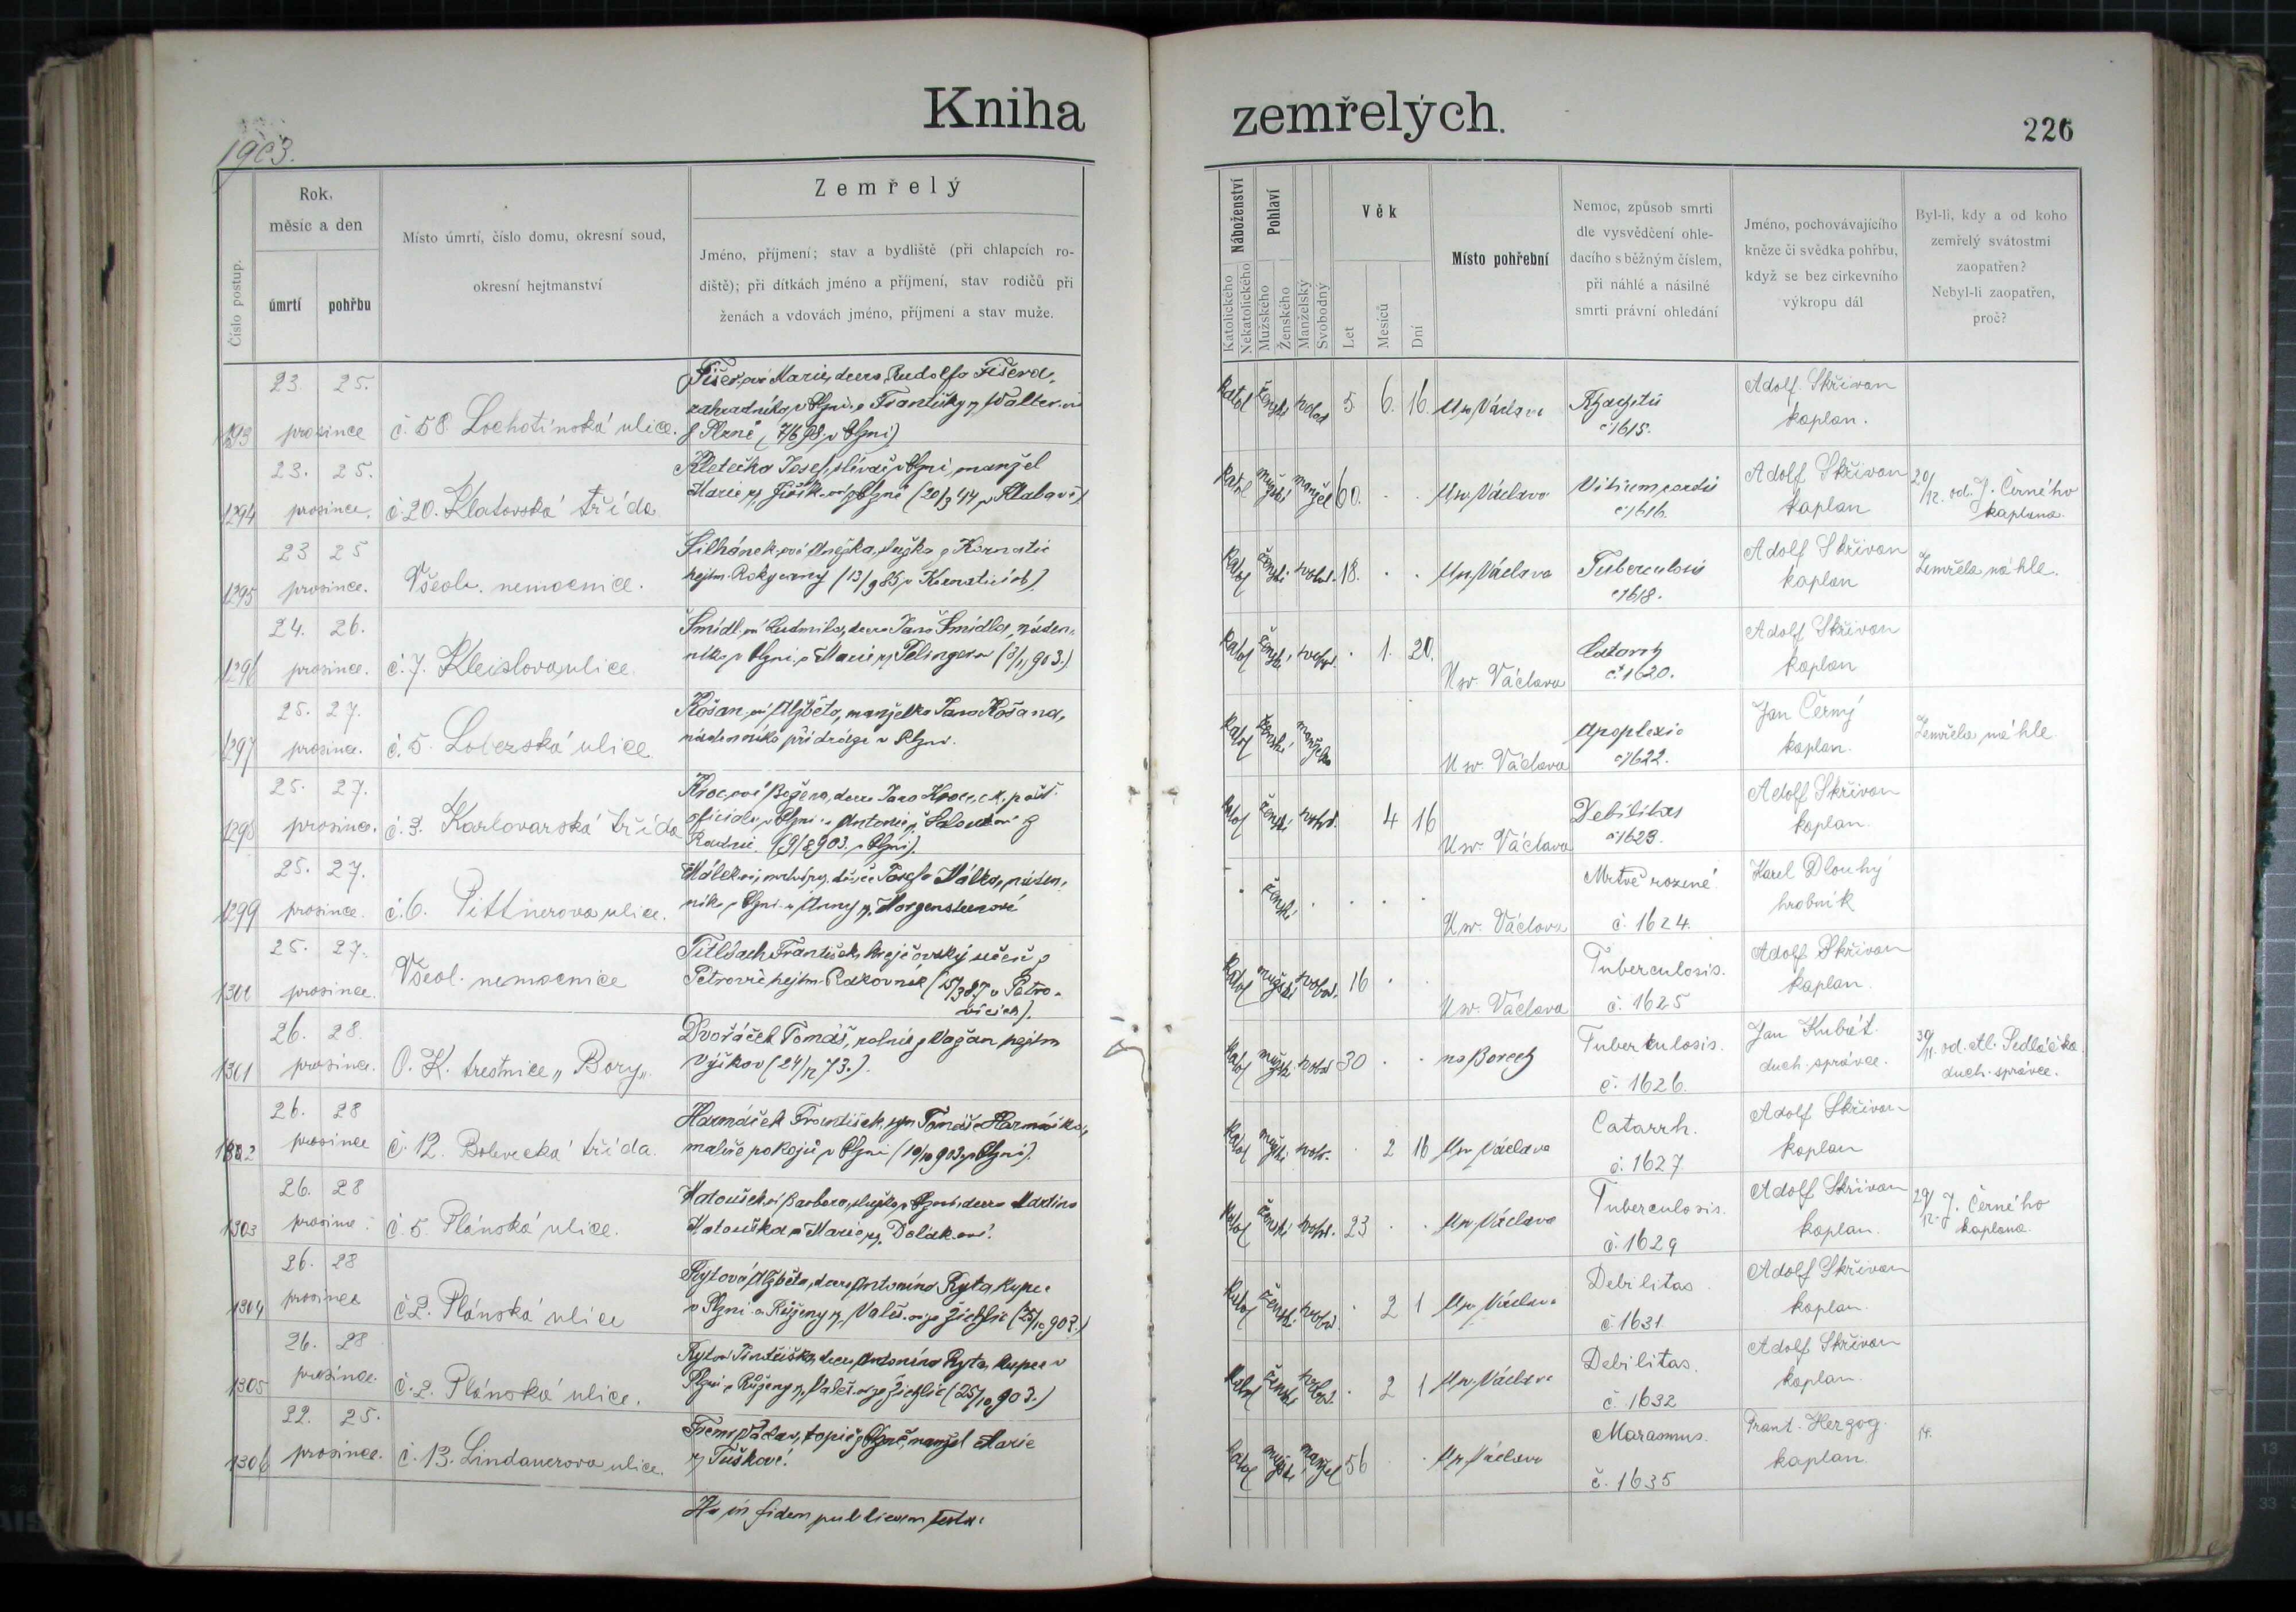 Kniha
zemřelých.
226
1903.
Číslo postup.
Rok,
měsíc a den
úmrtí
pohřbu
Místo úmrtí, číslo domu, okresní soud,
okresní hejtmanství
Zemřelý
Jméno, příjmení; stav a bydliště (při chlapcích ro-
diště); při dítkách jméno a příjmení, stav rodičů při
ženách a vdovách jméno, příjmení a stav muže.
Náboženství
Katolického
Nekatolického
Pohlaví
Mužského
Ženského
Manželský
Svobodný
Věk
Let
Mesíců
Dní
Místo pohřební
Nemoc, způsob smrti
dle vysvědčení ohle-
dacího s běžným číslem,
při náhlé a násilné
smrti právní ohledání
Jméno, pochovávajícího
kněze či svědka pohřbu,
když se bez církevního
výkropu dál
Byl-li, kdy a od koho
zemřelý svátostmi
zaopatřen?
Nebyl-li zaopatřen,
proč?
23. 25.
1293 prosince č. 58. Lochotínská ulice.
Marie, dcera Rudolfa Fišera,
zahradníka v Plzni a Františky
z Plzně
katol ženské 5. 6. 16. U sv. Václava
č 1615.
Adolf Skřivan
kaplan.
23. 25.
1294 prosince. č 20. Klatovská třída
Kletečka Josef, slévač v Plzni, manžel
Marie
katol mužské manžel 60. . . U sv. Václava
Vitium cordis
č 1616.
Adolf Skřivan
kaplan
20/12. od. J. Černého
kaplana.
23 25
1295 prosince. Všeob. nemocnice.
Anežka, služka z Kornatic
hejtm. Rokycany (13/9 85 v Kornaticích).
katol ženské svobod. 18. . . U sv. Václava
Tuberculosis
č 1618.
Adolf Skřivan
kaplan
Zemřela náhle.
24. 26.
1296 prosince. č. 7. Kleislova ulice.
Šmídl. ová Ludmila, dcera Jana Šmídla, náden-
níka v Plzni a Marie
katol ženské . 1. 20.
U sv. Václava
Catarrh
č. 1620.
Adolf Skřivan
kaplan
25. 27.
1297 prosince. č. 5. Lobezská ulice
Košan. ová Alžběta, manželka Jana Košana,
nádenníka při dráze v Plzni.
katol ženské manželka
U sv. Václava
Apoplexie
č 1622.
Jan Černý
kaplan.
Zemřela náhle
25. 27.
1298 prosince. č. 3. Karlovarská třída
Kroc. ová Božena, dcera Jana Kroce, c.k. pošt.
oficiála v Plzni a Antonie
(9/8 903. v Plzni).
katol ženské 4 16
U sv. Václava
Debilitas
č 1623.
Adolf Skřivan
kaplan.
25. 27.
1299 prosince. č. 6. Pittnerova ulice.
Josefa Málka, náden-
níka v Plzni a Anny r. Morgensternové
. ženské . . . .
U sv. Václava
Mrtvě rozené.
č. 1624.
Karel Dlouhý
hrobník
25. 27.
prosince. Všeob. nemocnice
František, krejčovský učeň z
Petrovic hejtm. Rakovník (15/3 87 v Petro-
vicích).
katol mužské svobod. 16 .
U sv. Václava
Tuberculosis.
č. 1625
Adolf Skřivan
kaplan.
26. 28.
1301 prosince. C. K. trestnice „Bory„
Dvořáček Tomáš, rolník z Važan hejtm
Vyškov (24/12 73.).
katol mužské svobod 30 . . na Borech
Tuberkulosis.
č. 1626.
Jan Kubát
duch. správce.
30/11. od. Al. Sedláčka
duch. správce.
26. 28
1302 prosince č. 12. Bolevecká třída.
Harmáček František, syn Tomáše Harmáčka,
malíře pokojů v Plzni (10/10 903 v Plzni).
katol mužské svob. . 2 16 U sv. Václava
Catarrh.
č. 1627.
Adolf Skřivan
kaplan
26. 28
1303 prosince. č. 5. Plánská ulice.
Matoušek. ová Barbora, služka v Plzni, dcera Martina
Matouška a Marie r. Dolák. ové.
katol ženské svobod. 23 . . U sv. Václava
Tuberculosis.
č. 1629
Adolf Skřivan
kaplan.
20/12. J. Černého
kaplana.
26. 28
1304 prosince č 2. Plánská ulice
Rytová Alžběta, dcera Antonína Ryta, kupce
v Plzni a Růženy r. Valeš. ové ze Žichlic (25/10 903.)
katol ženské svobod. . 2 1 U sv. Václava
Debilitas
č. 1631
Adolf Skřivan
kaplan.
26. 28
1305 prosince. č. 2. Plánská ulice.
Rytová Františka, dcera Antonína Ryta, kupce v
Plzni a Růženy r. Valeš. ové ze Žichlic (25/10 903.)
katol ženské svobod. . 2 1 U sv. Václava
Debilitas.
č. 1632
Adolf Skřivan
kaplan.
22. 25.
1306 prosince. č. 13. Lindauerova ulice.
Václav, topič z Plzně, manžel Marie
r. Tušková.
katol mužské manžel 56 . U sv. Václava
Marasmus.
č. 1635
Frant. Herzog
kaplan.
Ita in fidem publicam